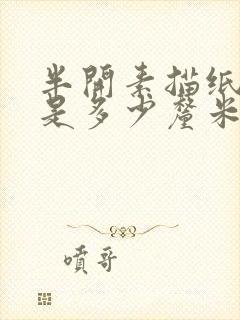 半開素描纸
是多少釐米
噴哥